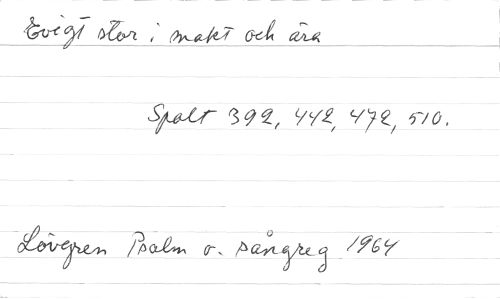 Evigt stor i makt och ära
Spalt 392, 442, 472, 510.
Lövgren Psalm o. sångreg 1964